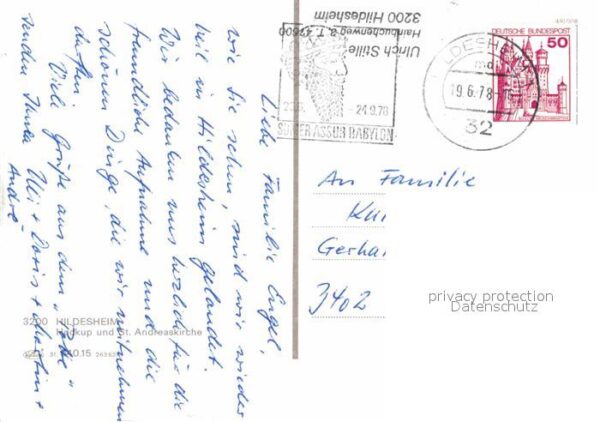 Liebe Familie Engel,
wie Sie sehen, sind wir wieder
heil in Hildesheim gelandet.
Wir bedanken uns herzlich für die
freundliche Aufnahme und die
schönen Dinge, die wir mitnehmen
durften.
Viele Grüße aus dem
senden Ihnen Uli + Doris + Martin +
André
Ulrich Stille
Hainbuchenweg 8 T. 47600
3200 Hildesheim
24.9.78
SUMER ASSUR BABYLON
HILDESHEIM
md
19.6.78
32
DEUTSCHE BUNDESPOST
50
An Familie
Gerha
3402
privacy protection
Datenschutz
3200 HILDESHEIM
Huckup und St. Andreaskirche